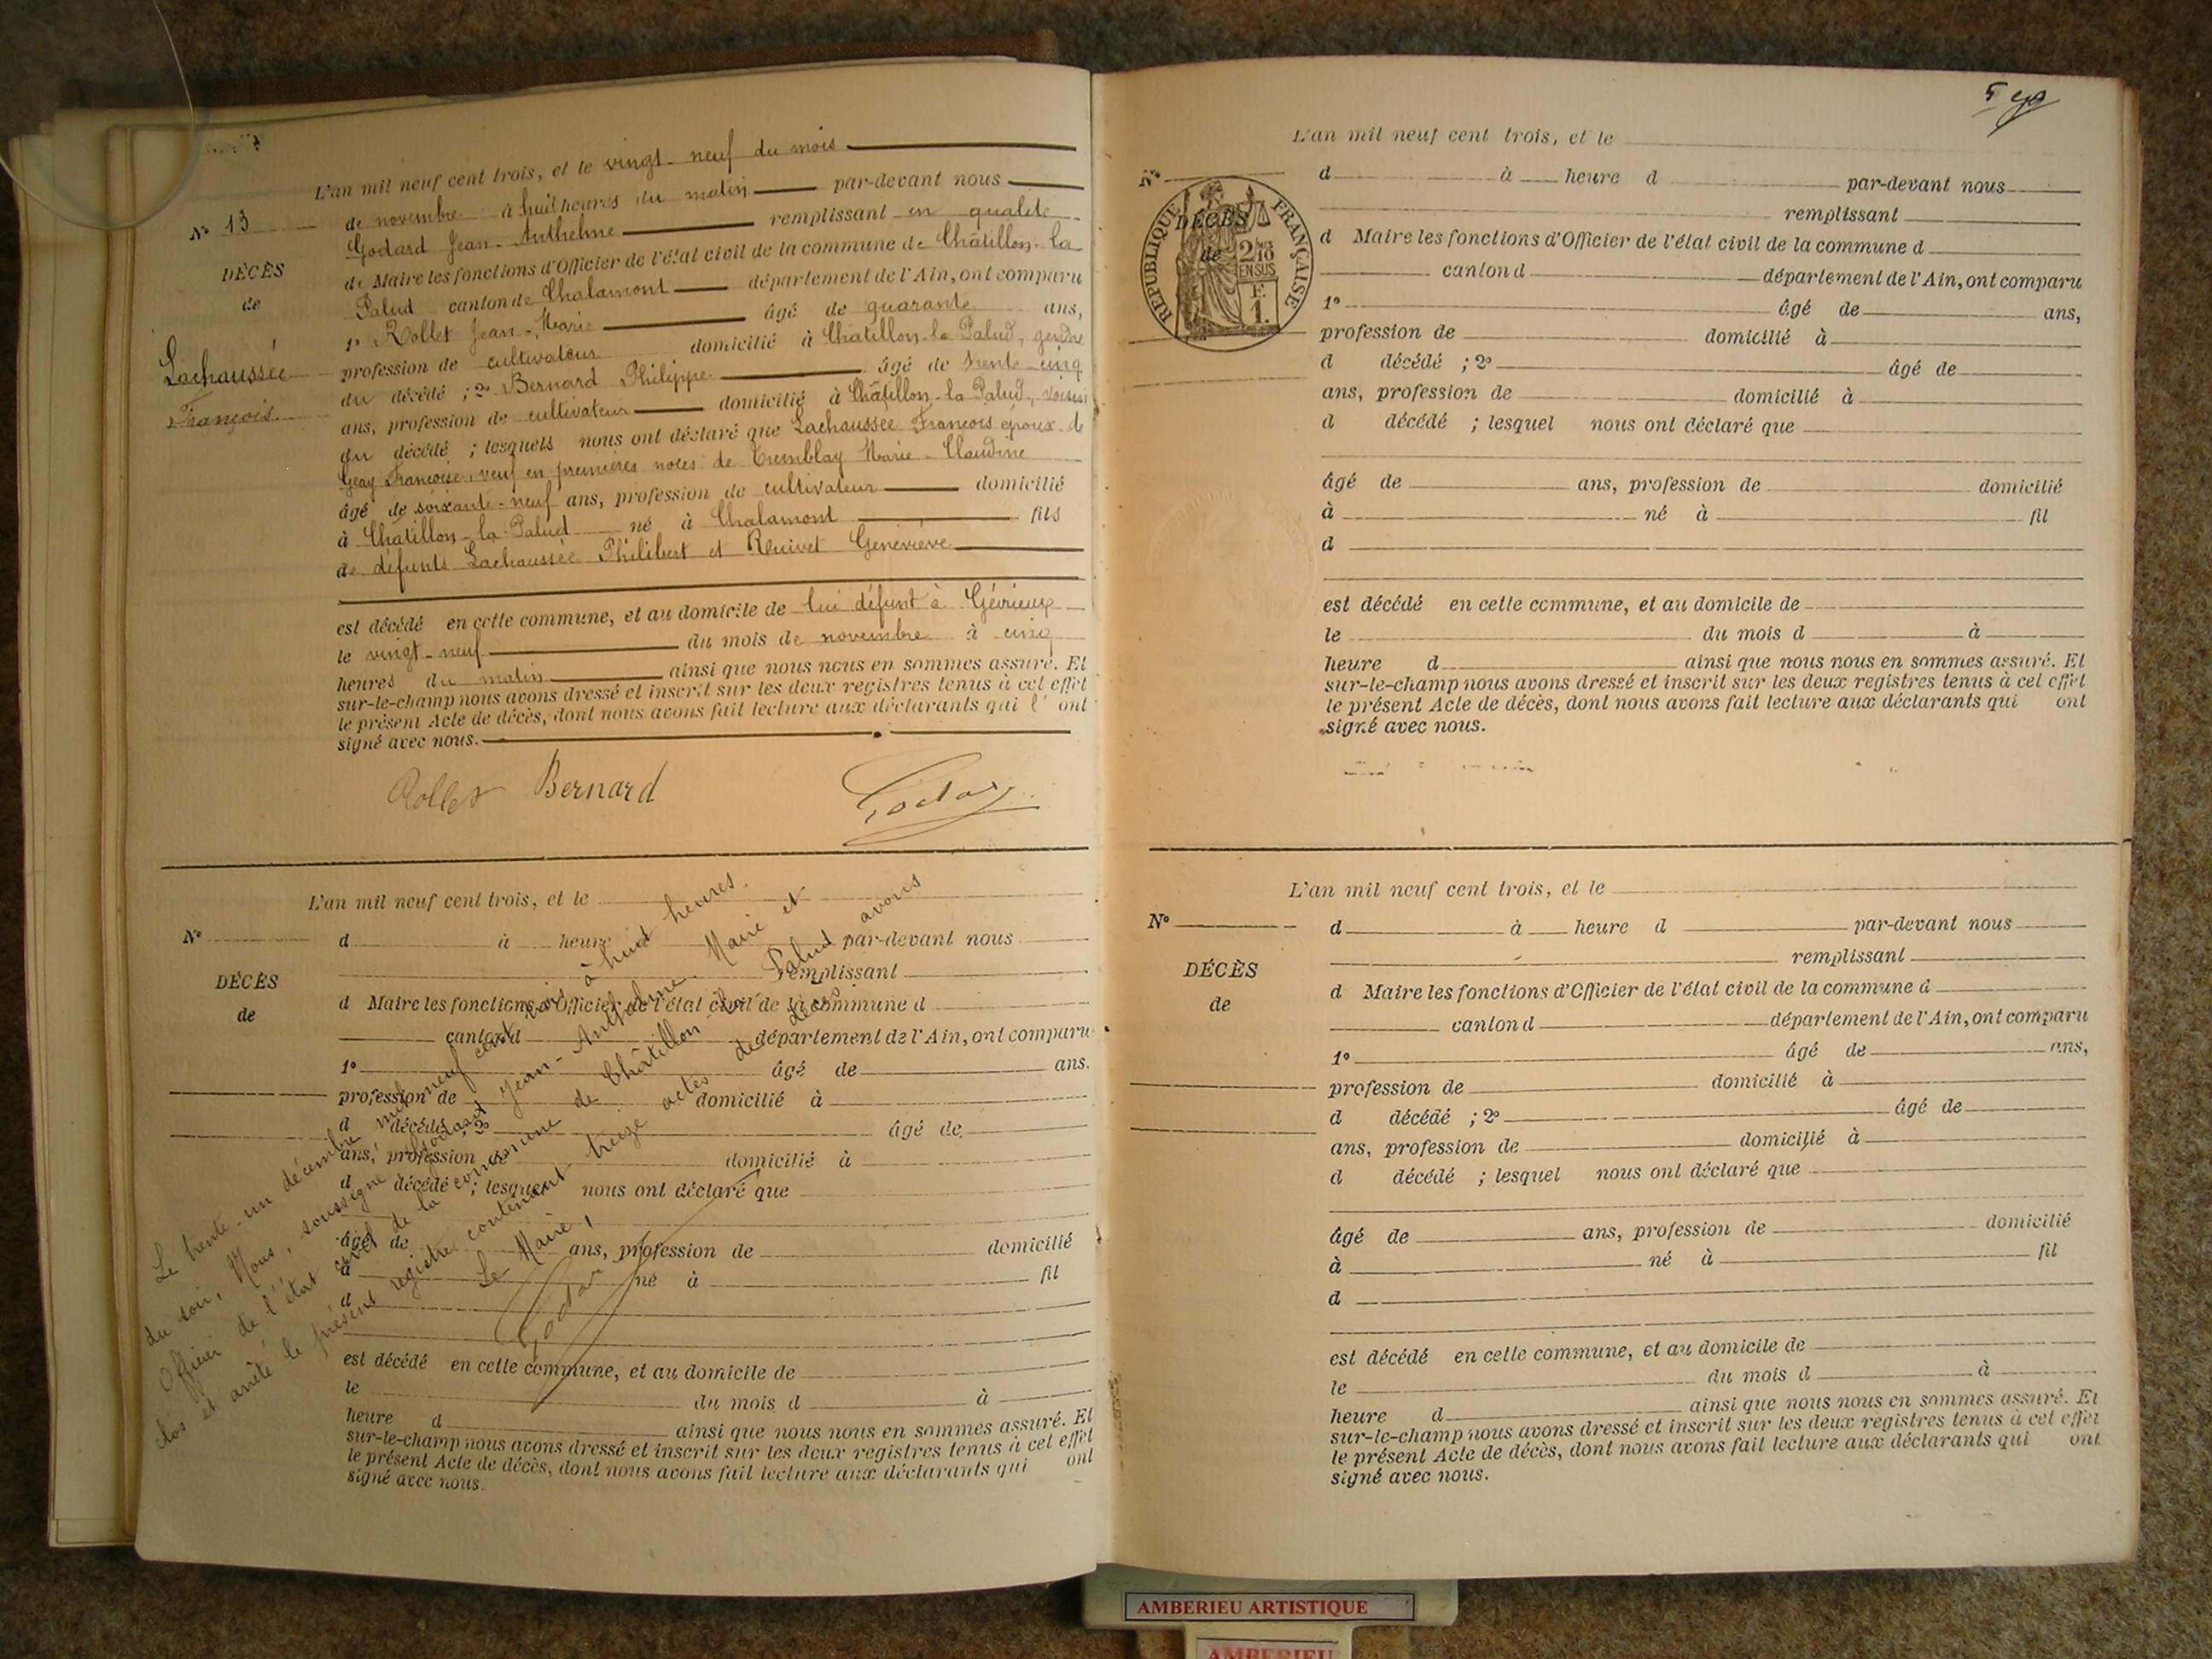 L'an mil neuf cent trois, et le vingt-neuf du mois
N° 13
de novembre à huit heures du matin par-devant nous
Godard Jean-Anthelme remplissant en qualité
de Maire les fonctions d'Officier de l'état civil de la commune de Châtillon-la
Palud canton de Chalamont département de l'Ain, ont comparu
1° Rollet Jean-Marie âgé de quarante ans,
profession de cultivateur domicilié à Châtillon-la Palud, gendre
du décédé ; 2° Bernard Philippe âgé de trente-cinq
ans, profession de cultivateur domicilié à Châtillon-la Palud, voisin
du décédé ; lesquels nous ont déclaré que Lachaussée François époux de
Geay Françoise, veuf en premières noces de Tremblay Marie-Claudine
âgé de soixante-neuf ans, profession de cultivateur domicilié
à Châtillon-la-Palud né à Chalamont fils
de défunts Lachaussée Philibert et Geneviève
est décédé en cette commune, et au domicile de lui défunt à Gévrieux
le vingt-neuf du mois de novembre à cinq
heures du matin ainsi que nous nous en sommes assuré. Et
sur-le-champ nous avons dressé et inscrit sur les deux registres tenus à cet effet
le présent Acte de décès, dont nous avons fait lecture aux déclarants qui l' ont
signé avec nous.
DÉCÈS
de
Lachaussée
François
Rollet Bernard Godard
L'an mil neuf cent trois, et le
N°
d à heure d par-devant nous
remplissant
d Maire les fonctions d'Officier de l'état civil de la commune d
canton d département de l'Ain, ont comparu
1° âgé de ans.
profession de domicilié à
d décédé ; 2° âgé de
ans, profession de domicilié à
d décédé ; lesquel nous ont déclaré que
âgé de ans, profession de domicilié
à né à fil
d
est décédé en cette commune, et au domicile de
le du mois d à
heure d ainsi que nous nous en sommes assuré. Et
sur-le-champ nous avons dressé et inscrit sur les deux registres tenus à cet effet
le présent Acte de décès, dont nous avons fait lecture aux déclarants qui ont
signé avec nous.
DÉCÈS
de
Le trente-un décembre mil neuf cent trois à huit heures
du soir, Nous, soussigné Godard Jean-Anthelme Maire et
Officier de l'état civil de la commune de Châtillon-la Palud avons
clos et arrêté le présent registre contenant treize actes de décès
Le Maire,
Godard
5
L'an mil neuf cent trois, et le
N°
d à heure d par-devant nous
remplissant
d Maire les fonctions d'Officier de l'état civil de la commune d
canton d département de l'Ain, ont comparu
1° âgé de ans,
profession de domicilié à
d décédé ; 2° âgé de
ans, profession de domicilié à
d décédé ; lesquel nous ont déclaré que
âgé de ans, profession de domicilié
à né à fil
d
est décédé en cette commune, et au domicile de
le du mois d à
heure d ainsi que nous nous en sommes assuré. Et
sur-le-champ nous avons dressé et inscrit sur les deux registres tenus à cet effet
le présent Acte de décès, dont nous avons fait lecture aux déclarants qui ont
signé avec nous.
DÉCÈS
de
RÉPUBLIQUE FRANÇAISE
2/10
EN SUS
F.
1.
L'an mil neuf cent trois, et le
N°
d à heure d par-devant nous
remplissant
d Maire les fonctions d'Officier de l'état civil de la commune d
canton d département de l'Ain, ont comparu
1° âgé de ans,
profession de domicilié à
d décédé ; 2° âgé de
ans, profession de domicilié à
d décédé ; lesquel nous ont déclaré que
âgé de ans, profession de domicilié
à né à fil
d
est décédé en cette commune, et au domicile de
le du mois d à
heure d ainsi que nous nous en sommes assuré. Et
sur-le-champ nous avons dressé et inscrit sur les deux registres tenus à cet effet
le présent Acte de décès, dont nous avons fait lecture aux déclarants qui ont
signé avec nous.
DÉCÈS
de
AMBERIEU ARTISTIQUE
AMBERIEU